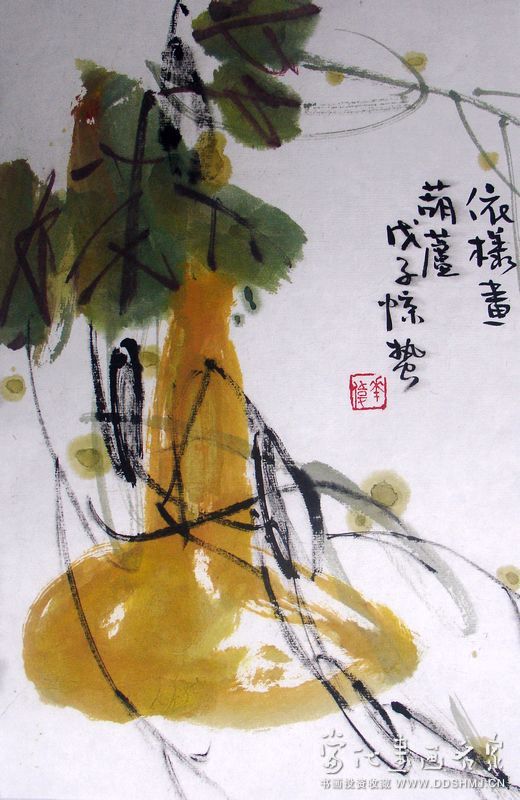 依樣畫
葫蘆
戊子惊蛰
當代書画名家
书画投资收藏 WWW.DDSHMJ.CN